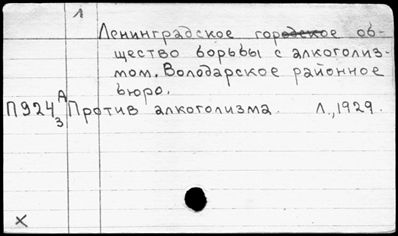 1
Ленинградское городское об-
щество борьбы с алкоголиз-
мом. Володарское районное
бюро.
П924 А/3 Против алкоголизма. Л., 1929.
x